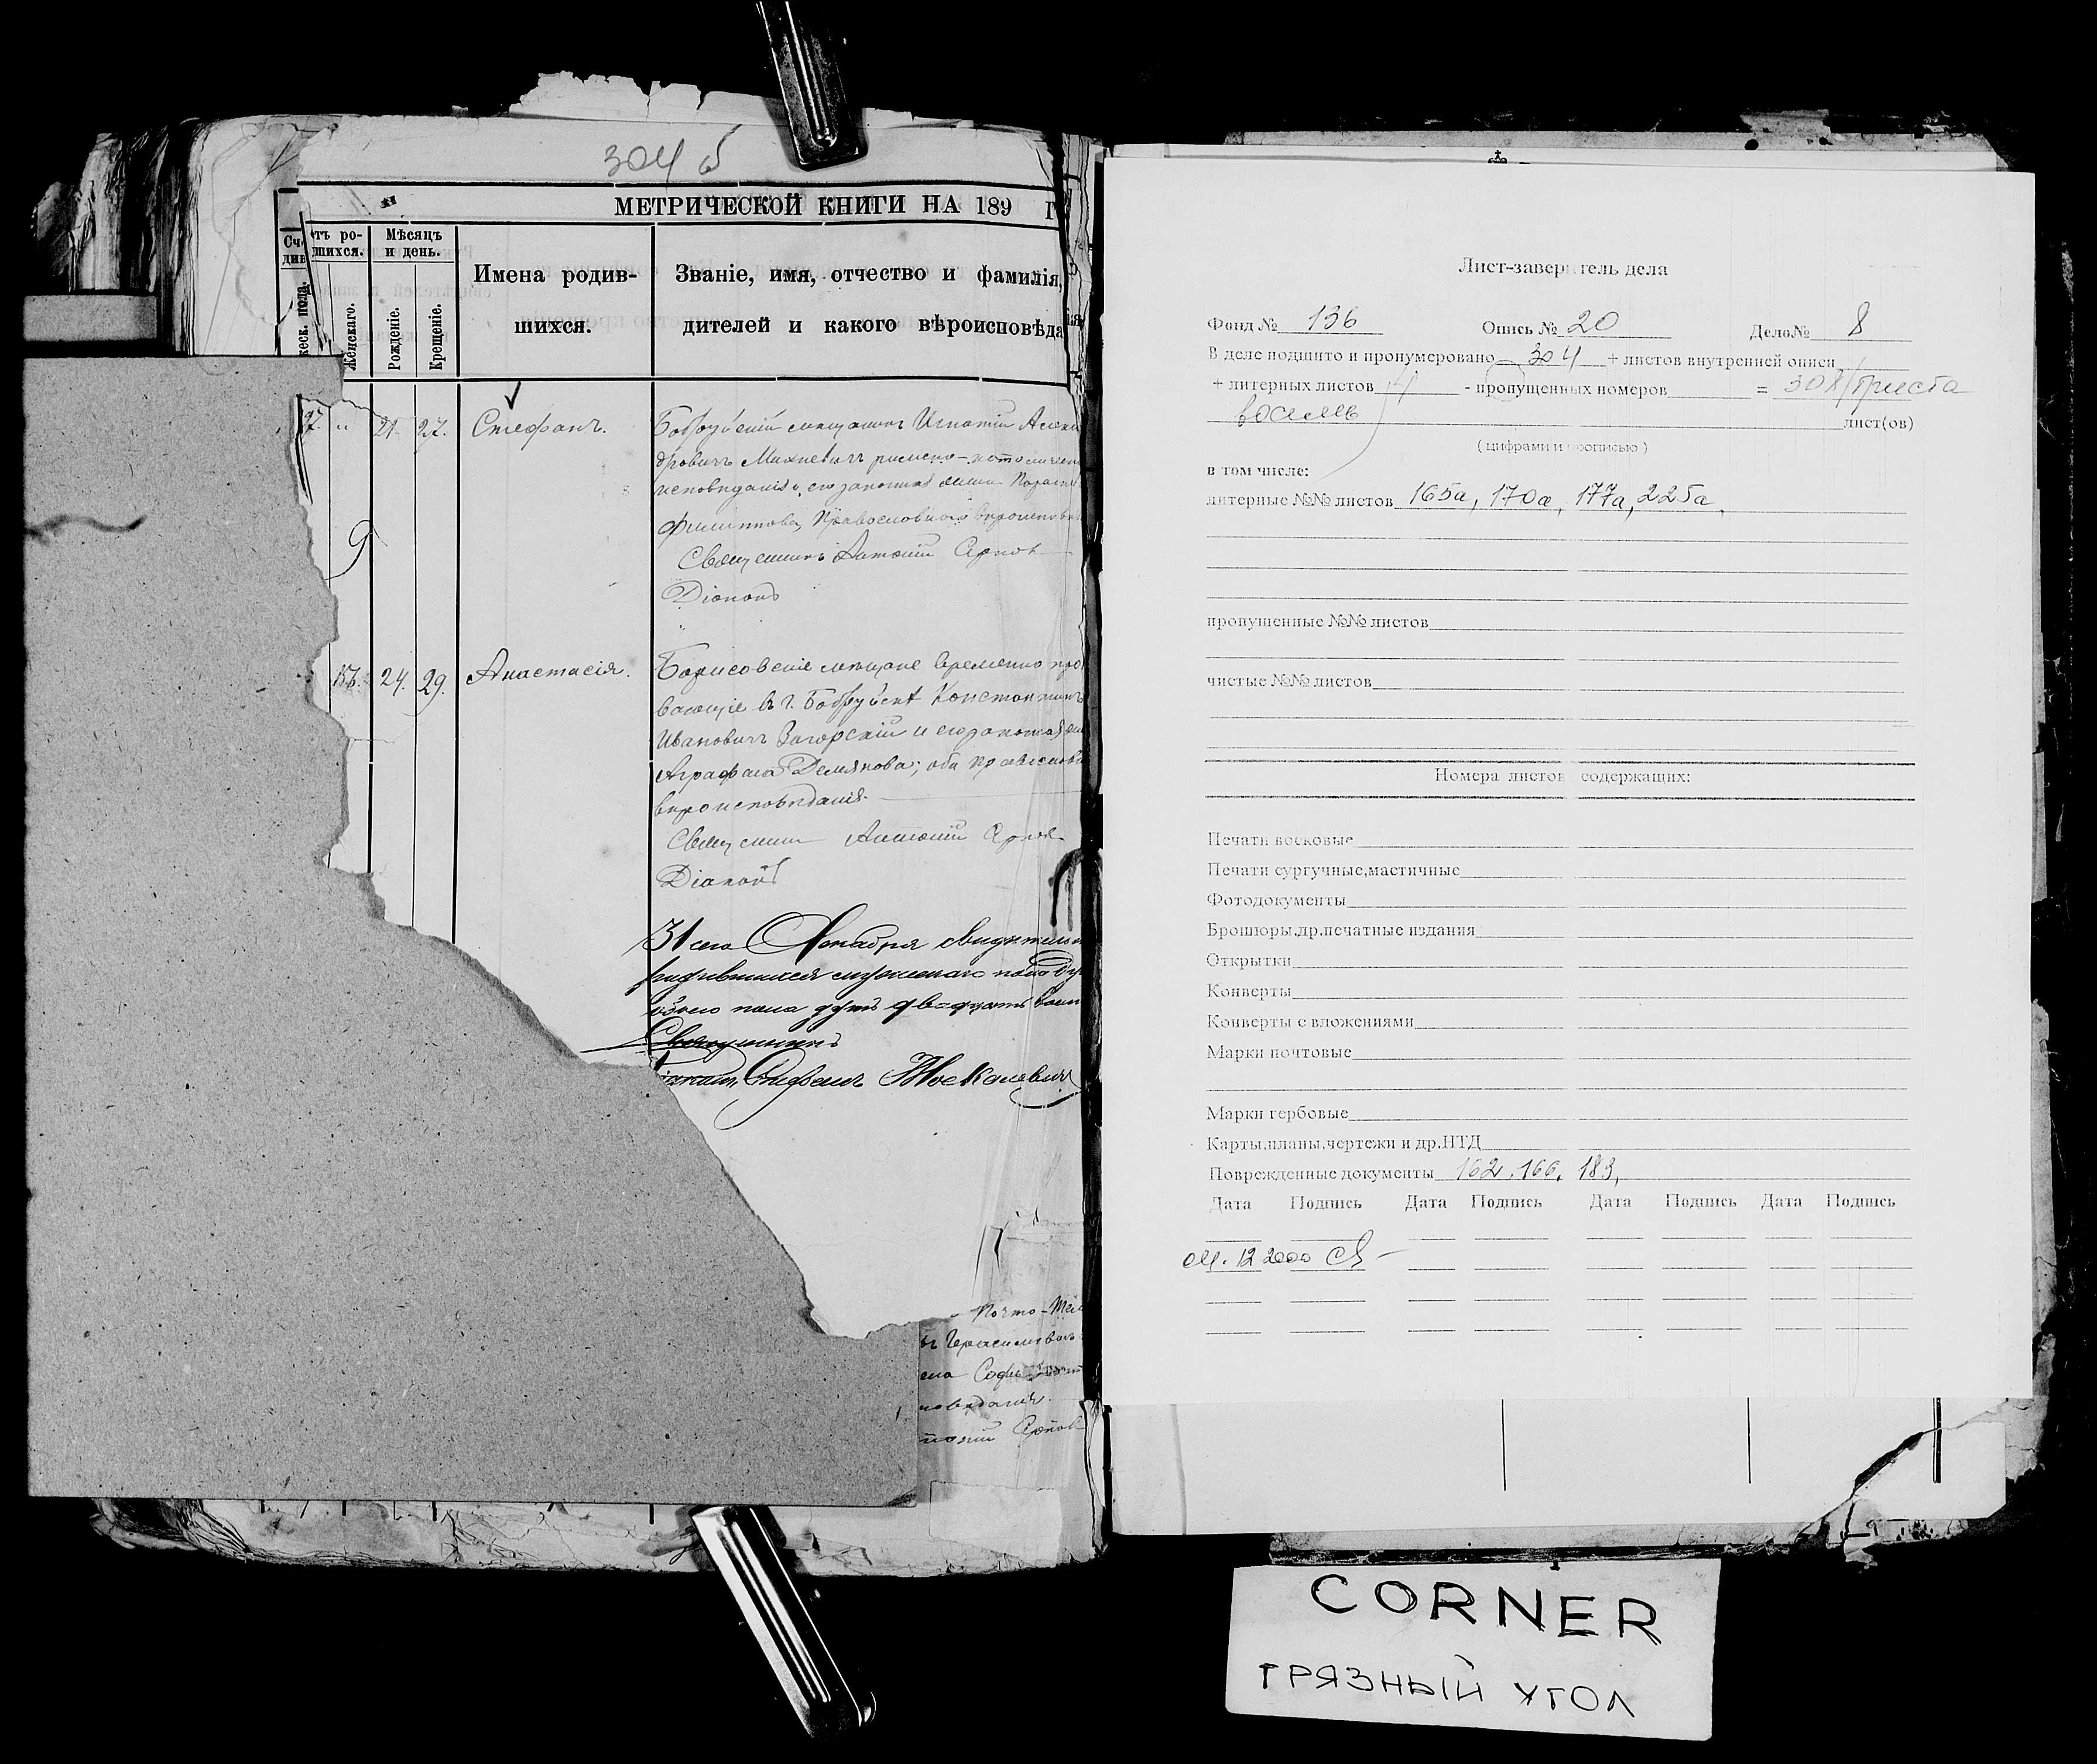 304 б
МЕТРИЧЕСКОЙ КНИГИ НА 189 Г
Сч
див
тъ ро-
шихся.
Мѣсяцъ
и день.
Имена родив-
шихся.
Званіе, имя, отчество и фамилія,
дителей и какого вѣроисповѣда
ческ. пола.
Женскаго.
Рожденіе.
Крещеніе.
97. " 21. 27. Стефанъ.
Бобруйскій мѣщанинъ Игнатій Алекса
дровичъ Михневичъ римско-католическ
исповѣданія, его законная жена Параск
Филиппова, Православнаго вѣроисповѣ
Священникъ Антоній
Діаконъ
9
24. 29. Анастасія.
Борисовскіе мѣщане временно про
вающіе въ г. Бобруйскѣ Константинъ
Ивановичъ Загорскій и его законная же
Демянова; оба православн
вѣроисповѣданія.
Антоній
Діаконъ
31 сего свидѣтельс
родившихся мужескаго пола
пола
Священникъ
Москалевичъ
Почто-Тел
Герасимовъ
ена Софі
повѣданія.
тоній
Лист-заверитель дела
Фонд № 136 Опись № 20 Дело№ 8
В деле подшито и пронумеровано 304 + листов внутренней описи
+ литерных листов 4 - пропущенных номеров = 308/триста
восемь лист(ов)
(цифрами и прописью)
в том числе:
литерные №№ листов 165а, 170а, 177а, 225а.
пропущенные №№ листов
чистые №№ листов
Номера листов содержащих:
Печати восковые
Печати сургучные,мастичные
Фотодокументы
Брошюры,др.печатные издания
Открытки
Конверты
Конверты с вложениями
Марки почтовые
Марки гербовые
Карты,планы,чертежи и др.НТД
Поврежденные документы 162, 166, 183,
Дата Подпись Дата Подпись Дата Подпись Дата Подпись
04. 12 2000
CORNER
ГРЯЗНЫЙ УГОЛ